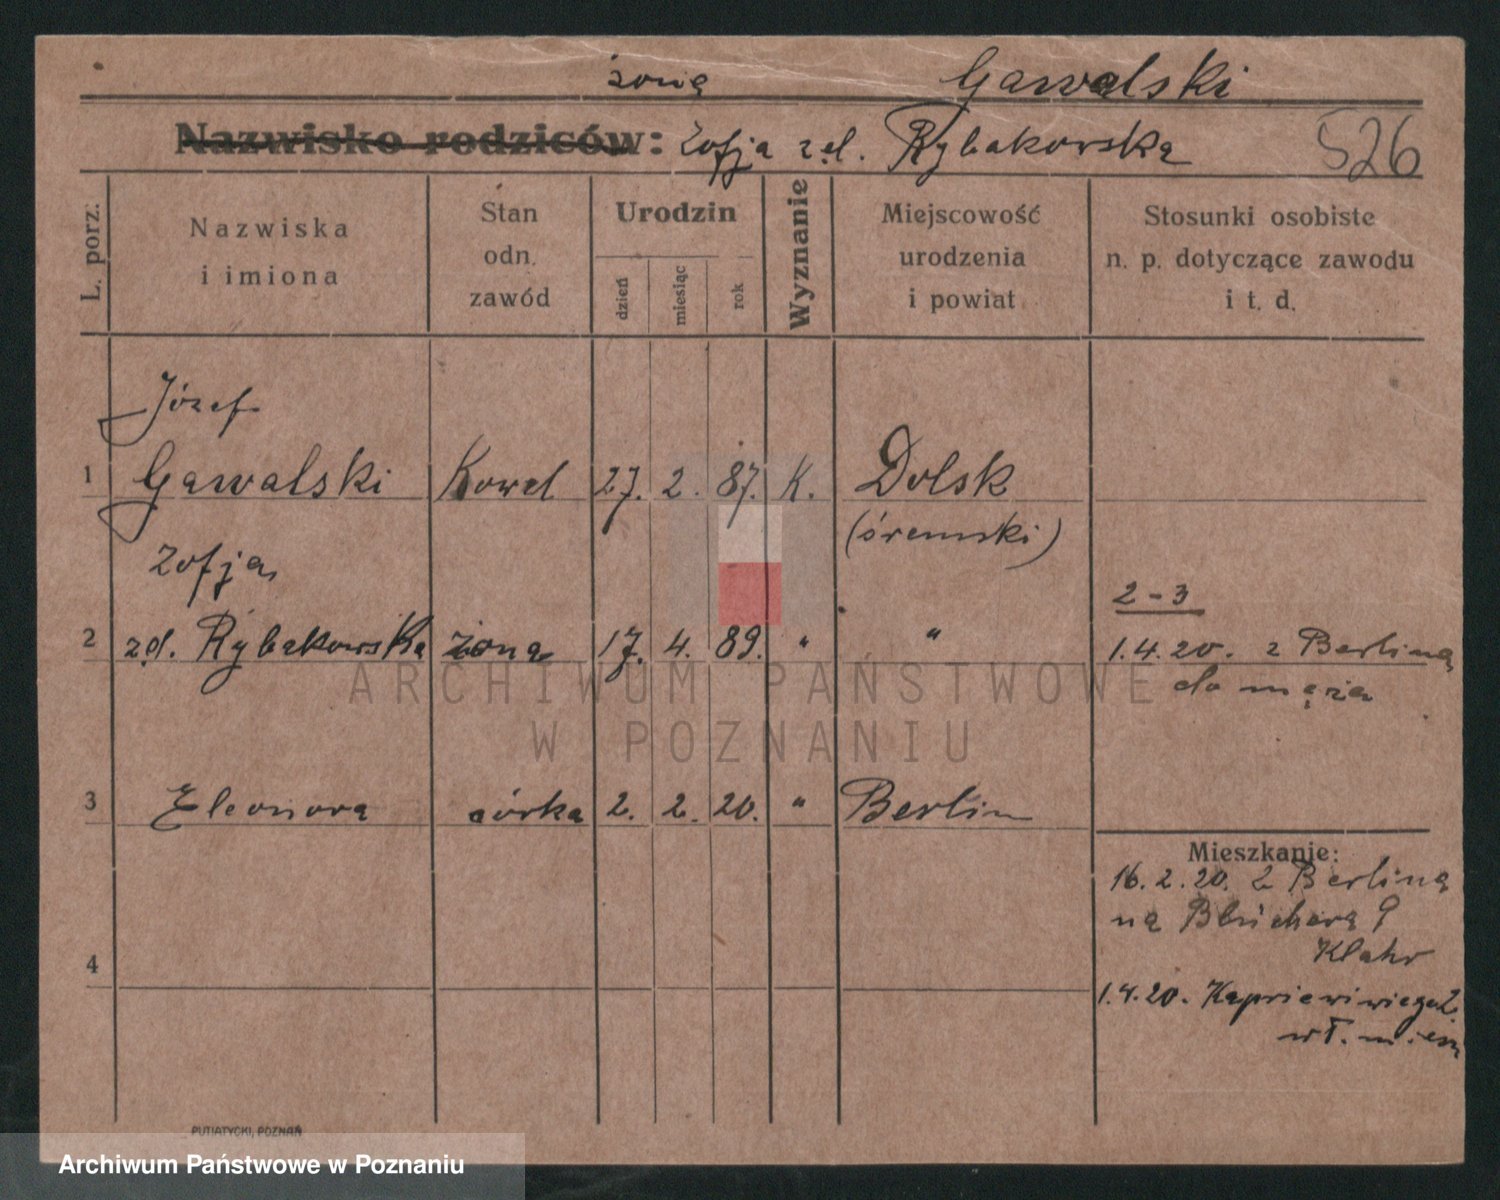 żona Gawalski
Nazwisko rodziców: Zofja zd. Rybakowska 526
L. porz.
Nazwiska
i imiona
Stan
odn.
zawód
Urodzin
dzień
miesiąc
rok
Wyznanie
Miejscowość
urodzenia
i powiat
Stosunki osobiste
n. p. dotyczące zawodu
i t. d.
Józef
1 Gawalski Kowal 27. 2. 87. K. Dolsk
(śremski)
Zofja
2 zd. Rybakowska żona 17. 4. 89. " "
2-3
1.4.20. z Berlina
do męża
3 Eleonora córka 2. 2. 20. " Berlin
Mieszkanie:
16.2.20. z Berlina
na Blüchera 9
Klahr
4
1.4.20.
wł. miesz
PUTIATYCKI, POZNAŃ
ARCHIWUM PAŃSTWOWE
W POZNANIU
Archiwum Państwowe w Poznaniu